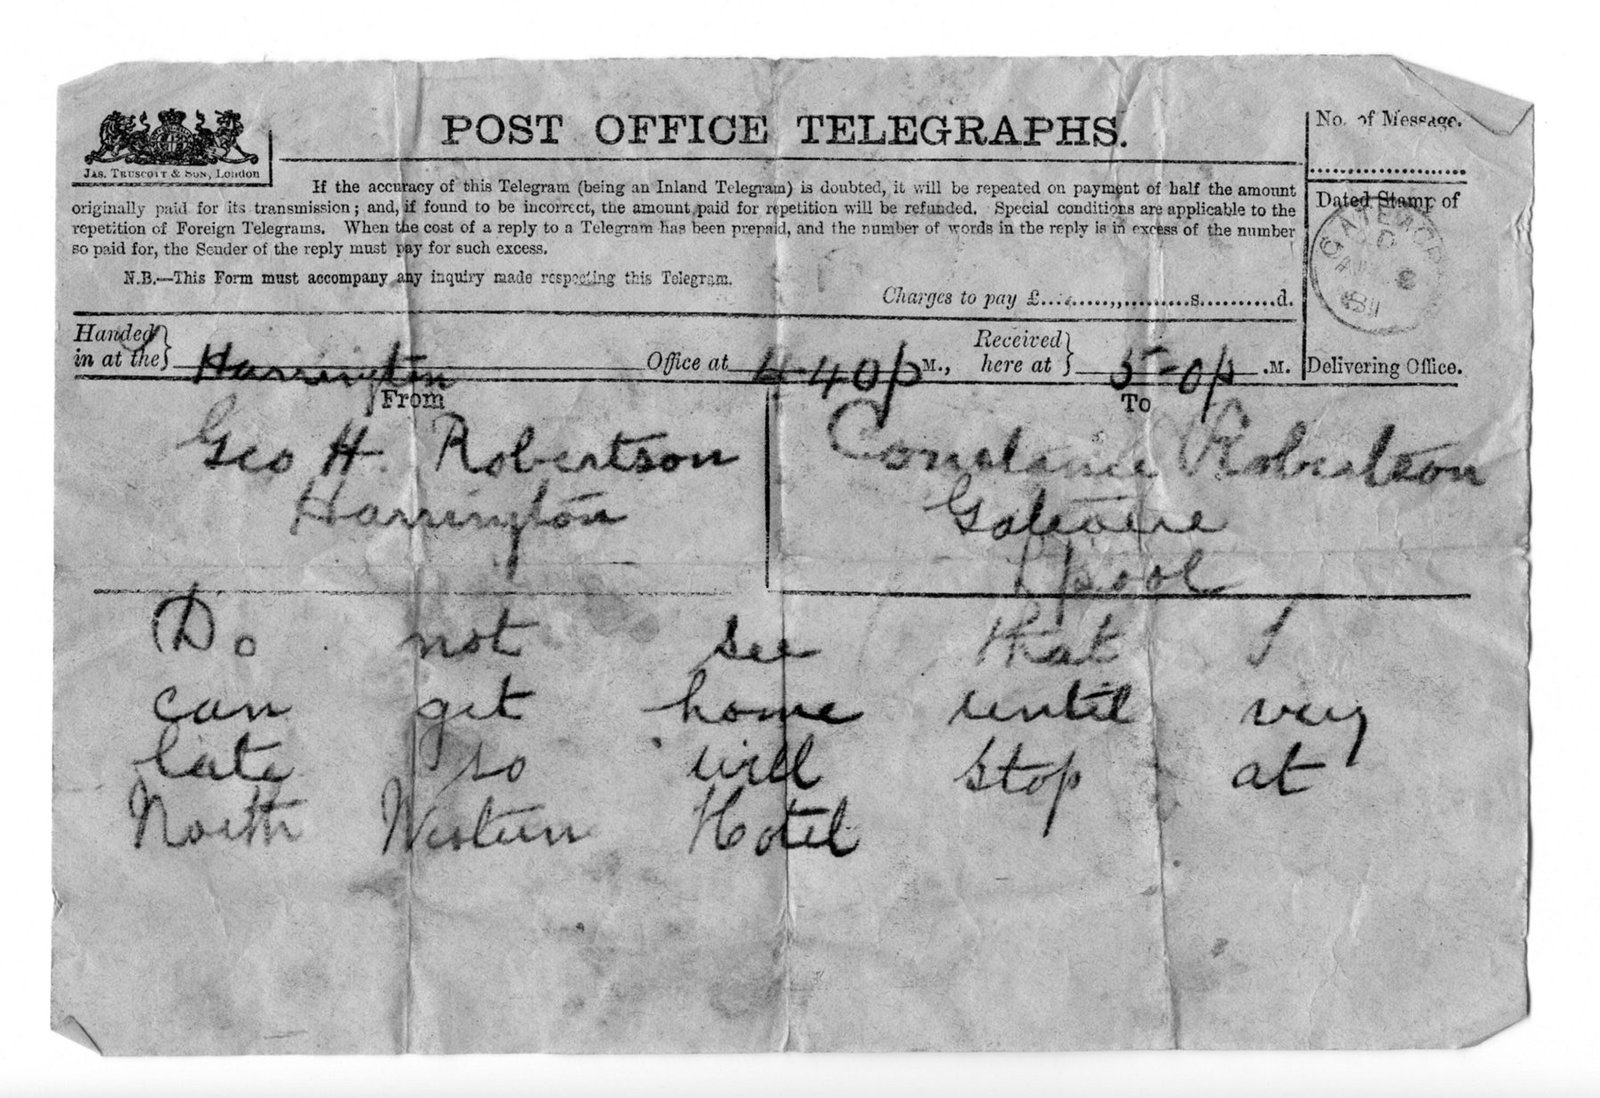 POST OFFICE TELEGRAPHS.
JAS. TRUSCOTT & SON, London
If the accuracy of this Telegram (being an Inland Telegram) is doubted, it will be repeated on payment of half the amount
originally paid for its transmission; and, if found to be incorrect, the amount paid for repetition will be refunded. Special conditions are applicable to the
repetition of Foreign Telegrams. When the cost of a reply to a Telegram has been prepaid, and the number of words in the reply is in excess of the number
so paid for, the Sender of the reply must pay for such excess.
N.B.—This Form must accompany any inquiry made respecting this Telegram.
Charges to pay £ s d.
No. of Message.
Dated Stamp of
Delivering Office.
Handed in at the } Harrington Office at 4-40p M., Received here at } 5-0p .M.
From
Geo H. Robertson
Harrington
To
Constance Robertson
Lpool
Do not see that I
can get home until very
late so will stop at
North Western Hotel